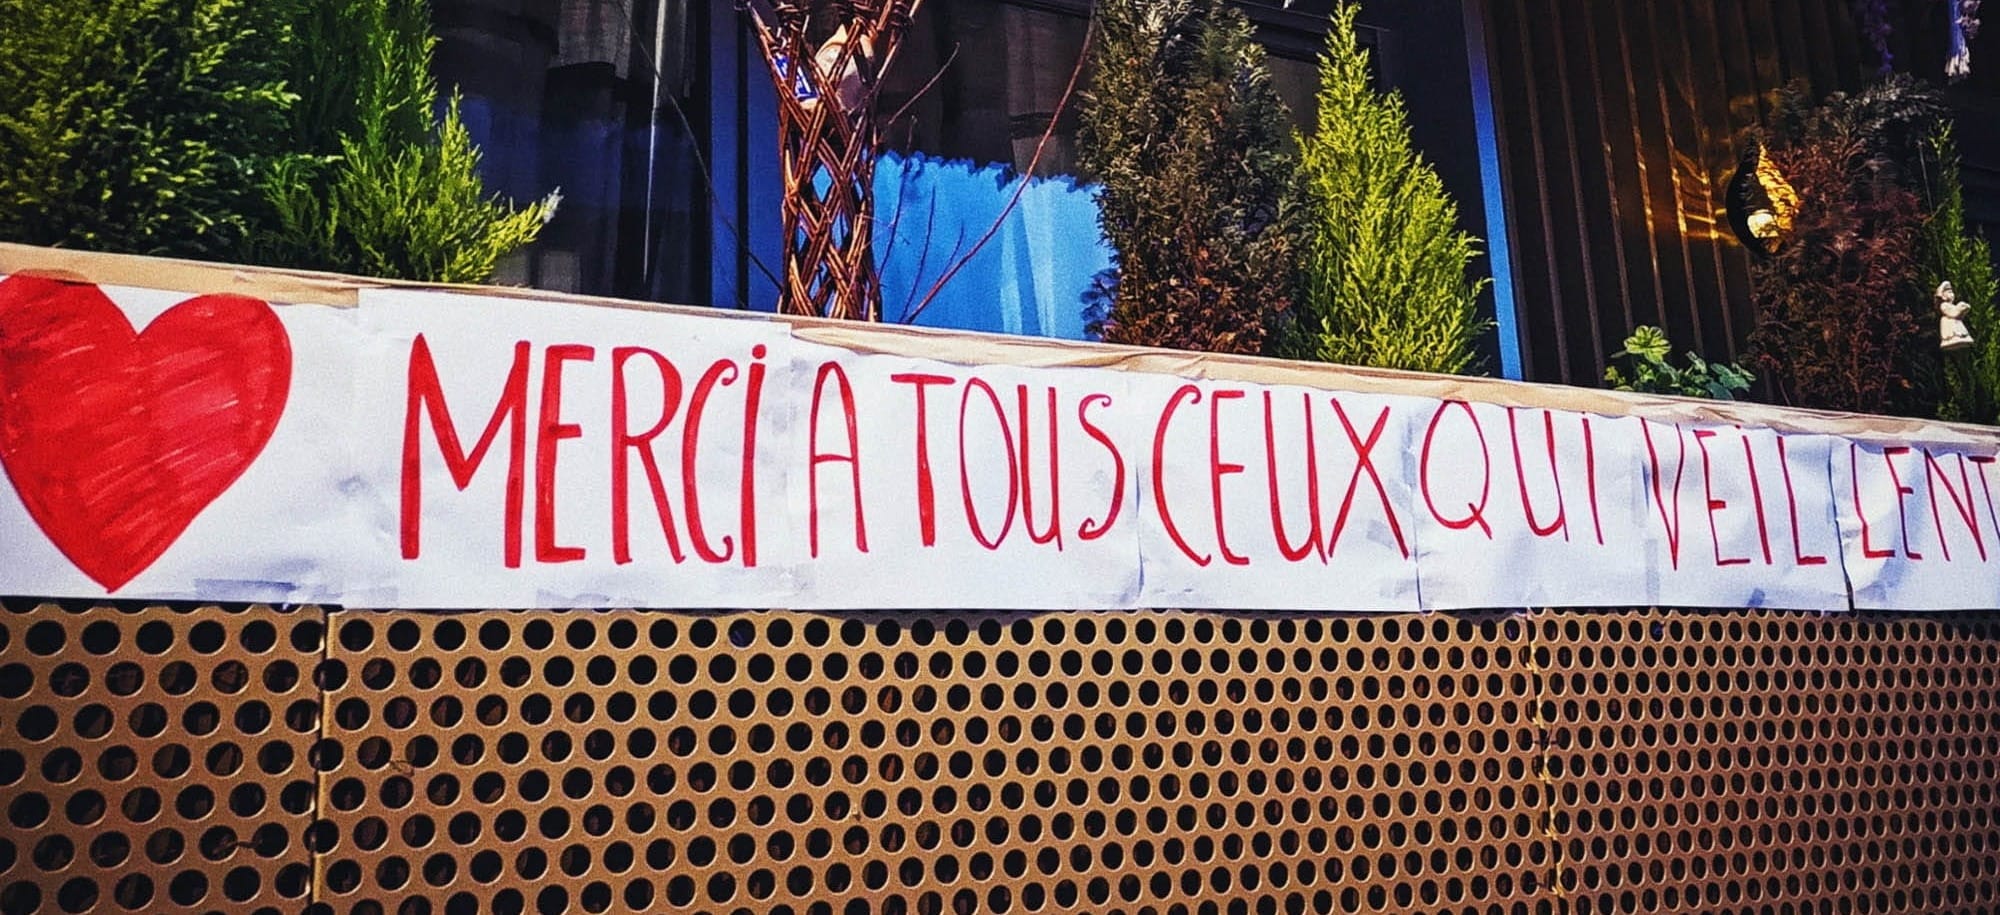 MERCI A TOUS CEUX QUI VEILLENT